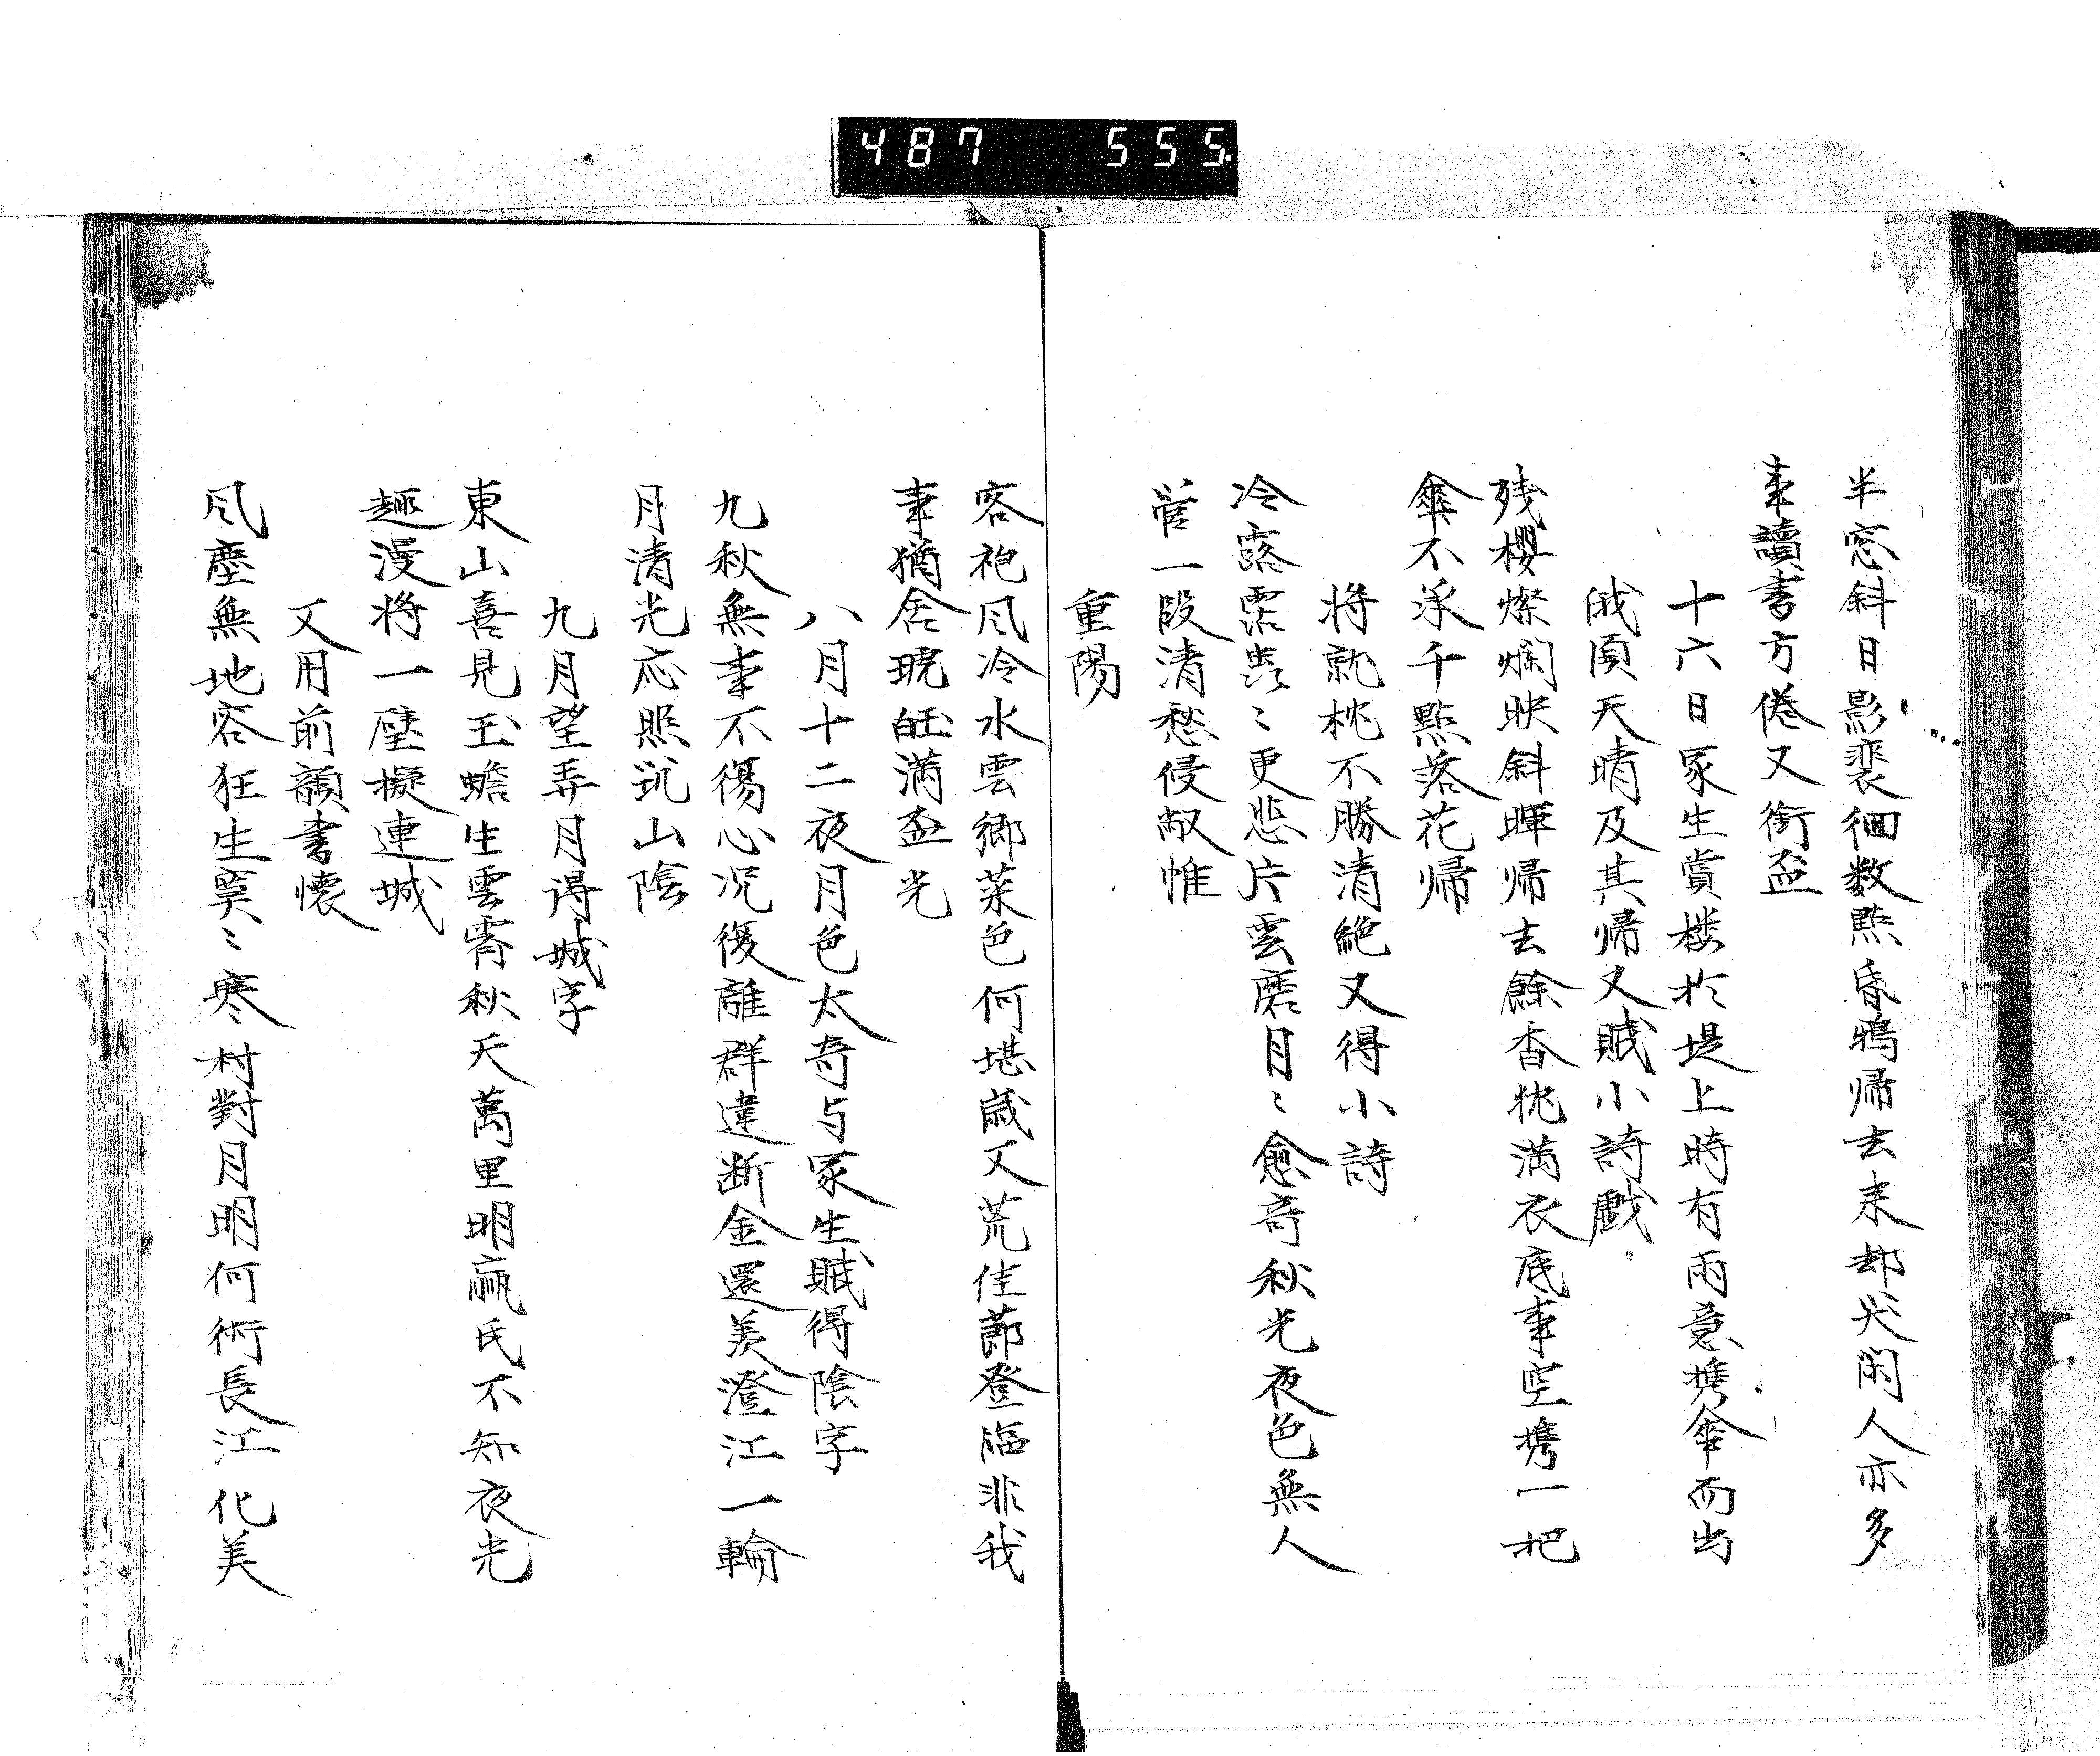 487 555
半窓斜日影裴徊数點昏鴉帰去来却笑閑人亦多
事讀書方倦又銜盃
十六日冢生賞桜於堤上時有雨意携傘而出
俄頃天晴及其帰又賦小詩戯
残櫻燦爛映斜暉帰去餘香猶満衣底事空携一把
傘不承千點落花帰
将就枕不勝清絶又得小詩
冷露霑蛩〻更悲片雲磨月〻愈奇秋光夜色無人
管一段清愁侵敝惟
重陽
客袍风冷水雲郷菜色何堪歳又荒佳莭登臨非我
事猶舎琥珀満盃光
八月十二夜月色太奇与冢生賦得陰字
九秋無事不傷心况復離群違断金還羨澄江一輪
月清光応照沉山陰
九月望弄月得城字
東山喜見玉蟾生雲霄秋天萬里明嬴氏不知夜光
趣漫将一壁擬連城
又用前韻書懐
风塵無地容狂生寞〻寒村對月明何術長江化美